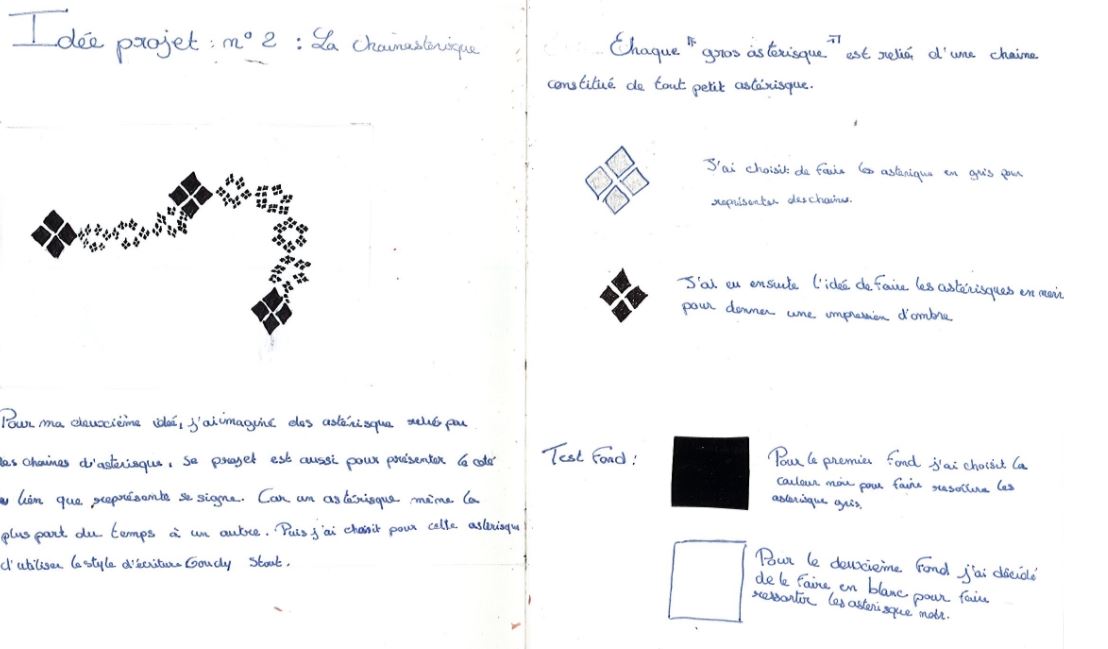 Idée projet : n° 2 : La chainasterisque
Pour ma deuxième idé, j'ai imaginé des astérisque relié par
les chaines d'asterisque, se projet est aussi pour présenter le coté
lien que représente se signe. Car un astérisque mène la
plus part du temps à un autre. Puis j'ai choisit pour cette asterisque
d'utiliser le style d'écriture Goudy Stout.
Chaque "gros astérisque" est relié d'une chaine
constitué de tout petit astérisque.
J'ai choisit de faire les asterique en gris pour
représenter des chaines.
J'ai eu ensuite l'idée de faire les astérisques en noir
pour donner une impression d'ombre
Test Fond :
Pour le premier fond j'ai choisit la
couleur noir pour faire les
asterique gris.
Pour le deuxième fond j'ai décidé
de le faire en blanc pour faire
ressortir les asterisque noir.